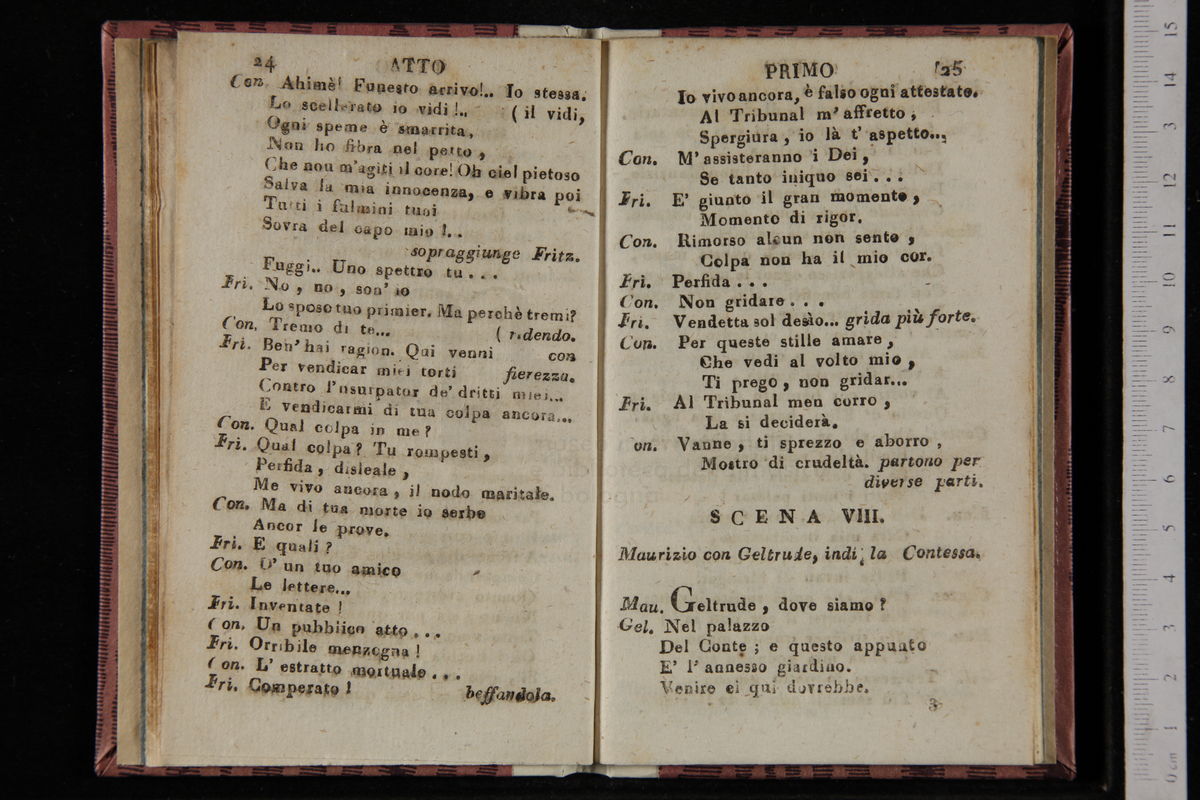 24 ATTO
Con. Ahimè! Funesto arrivo!.. Io stessa.
Lo scellerato io vidi!.. ( il vidi,
Ogni speme è smarrita,
Non ho fibra nel petto,
Che non m'agiti il core! Oh ciel pietoso
Salva la mia innocenza, e vibra poi
Tutti i fulmini tuoi
Sovra del capo mio !..
sopraggiunge Fritz.
Fuggi.. Uno spettro tu...
Fri. No, no, son' io
Lo sposo tuo primier. Ma perchè tremi?
Con. Tremo di te... ( ridendo.
Fri. Ben' hai ragion. Qui venni con
Per vendicar miei torti fierezza.
Contro l'usurpator de' dritti miei...
E vendicarmi di tua colpa ancora...
Con. Qual colpa in me?
Fri. Qual colpa? Tu rompesti,
Perfida, disleale,
Me vivo ancora, il nodo maritale.
Con. Ma di tua morte io serbo
Ancor le prove.
Fri. E quali?
Con. D' un tuo amico
Le lettere...
Fri. Inventate!
Con. Un pubblico atto...
Fri. Orribile menzogna!
Con. L' estratto mortuale...
Fri. Comperato! beffandola.
PRIMO 25
Io vivo ancora, è falso ogni attestato.
Al Tribunal m' affretto,
Spergiura, io là t' aspetto...
Con. M' assisteranno i Dei,
Se tanto iniquo sei...
Fri. E' giunto il gran momento,
Momento di rigor.
Con. Rimorso alcun non sento,
Colpa non ha il mio cor.
Fri. Perfida...
Con. Non gridare...
Fri. Vendetta sol desìo... grida più forte.
Con. Per queste stille amare,
Che vedi al volto mio,
Ti prego, non gridar...
Fri. Al Tribunal men corro,
La si deciderà.
on. Vanne, ti sprezzo e aborro,
Mostro di crudeltà. partono per
diverse parti.
SCENA VIII.
Maurizio con Geltrude, indi la Contessa.
Mau. Geltrude, dove siamo?
Gel. Nel palazzo
Del Conte; e questo appunto
E' l' annesso giardino.
Venire ei qui dovrebbe.
3
0 cm 1 2 3 4 5 6 7 8 9 10 11 12 13 14 15